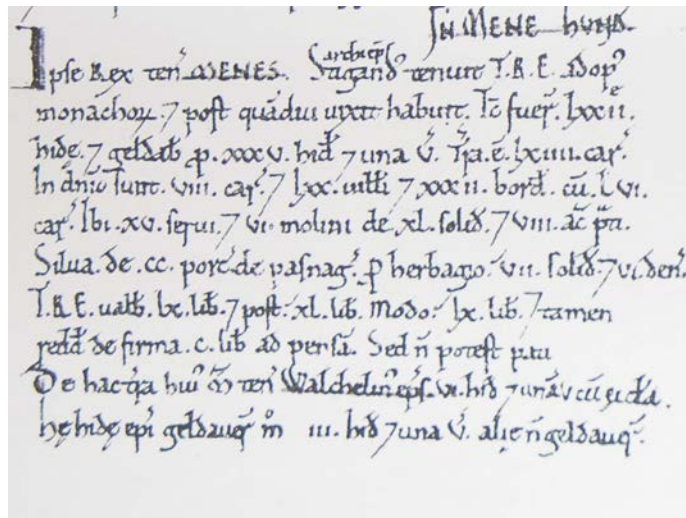 IN MENE HUND.
Ipse Rex ten̄ MENES. Stigand' archiep̄s tenuit T.R.E. ad op'
monachoꝝ. ⁊ post quādiu uixit habuit. Tc̄ fuer̄. lxxii.
hidę. ⁊ geldab̄ p. xxxv. hid̄ ⁊ una v̄. Tr̄a. ē. lxiiii. car̄.
In dn̄io sunt. viii. car̄. ⁊ lxx. uilłi ⁊ xxxii. bord̄. cū. lvi.
car̄. Ibi. xv. serui. ⁊ vi. molini de xl. solid̄. ⁊ viii. ac̄ p̄ti.
Silua. de. cc. porc̄. de pasnaḡ. ꝑ herbagio. vii. solid̄. ⁊ vi. den̄.
T.R.E. ualb̄. lx. lib̄. ⁊ post. xl. lib̄. Modo. lx. lib̄. ⁊ tamen
redd̄ de firma. c. lib̄ ad pensā. Sed n̄ potest pati
De hac tr̄a hui' M̄ ten̄ Walchelin' ep̄s. vi. hid̄ ⁊ unā v cū ęccła.
hę hidę ep̄i geldauer̄ m̊ iii. hid̄ ⁊ una v̄. alię n̄ geldauer̄.